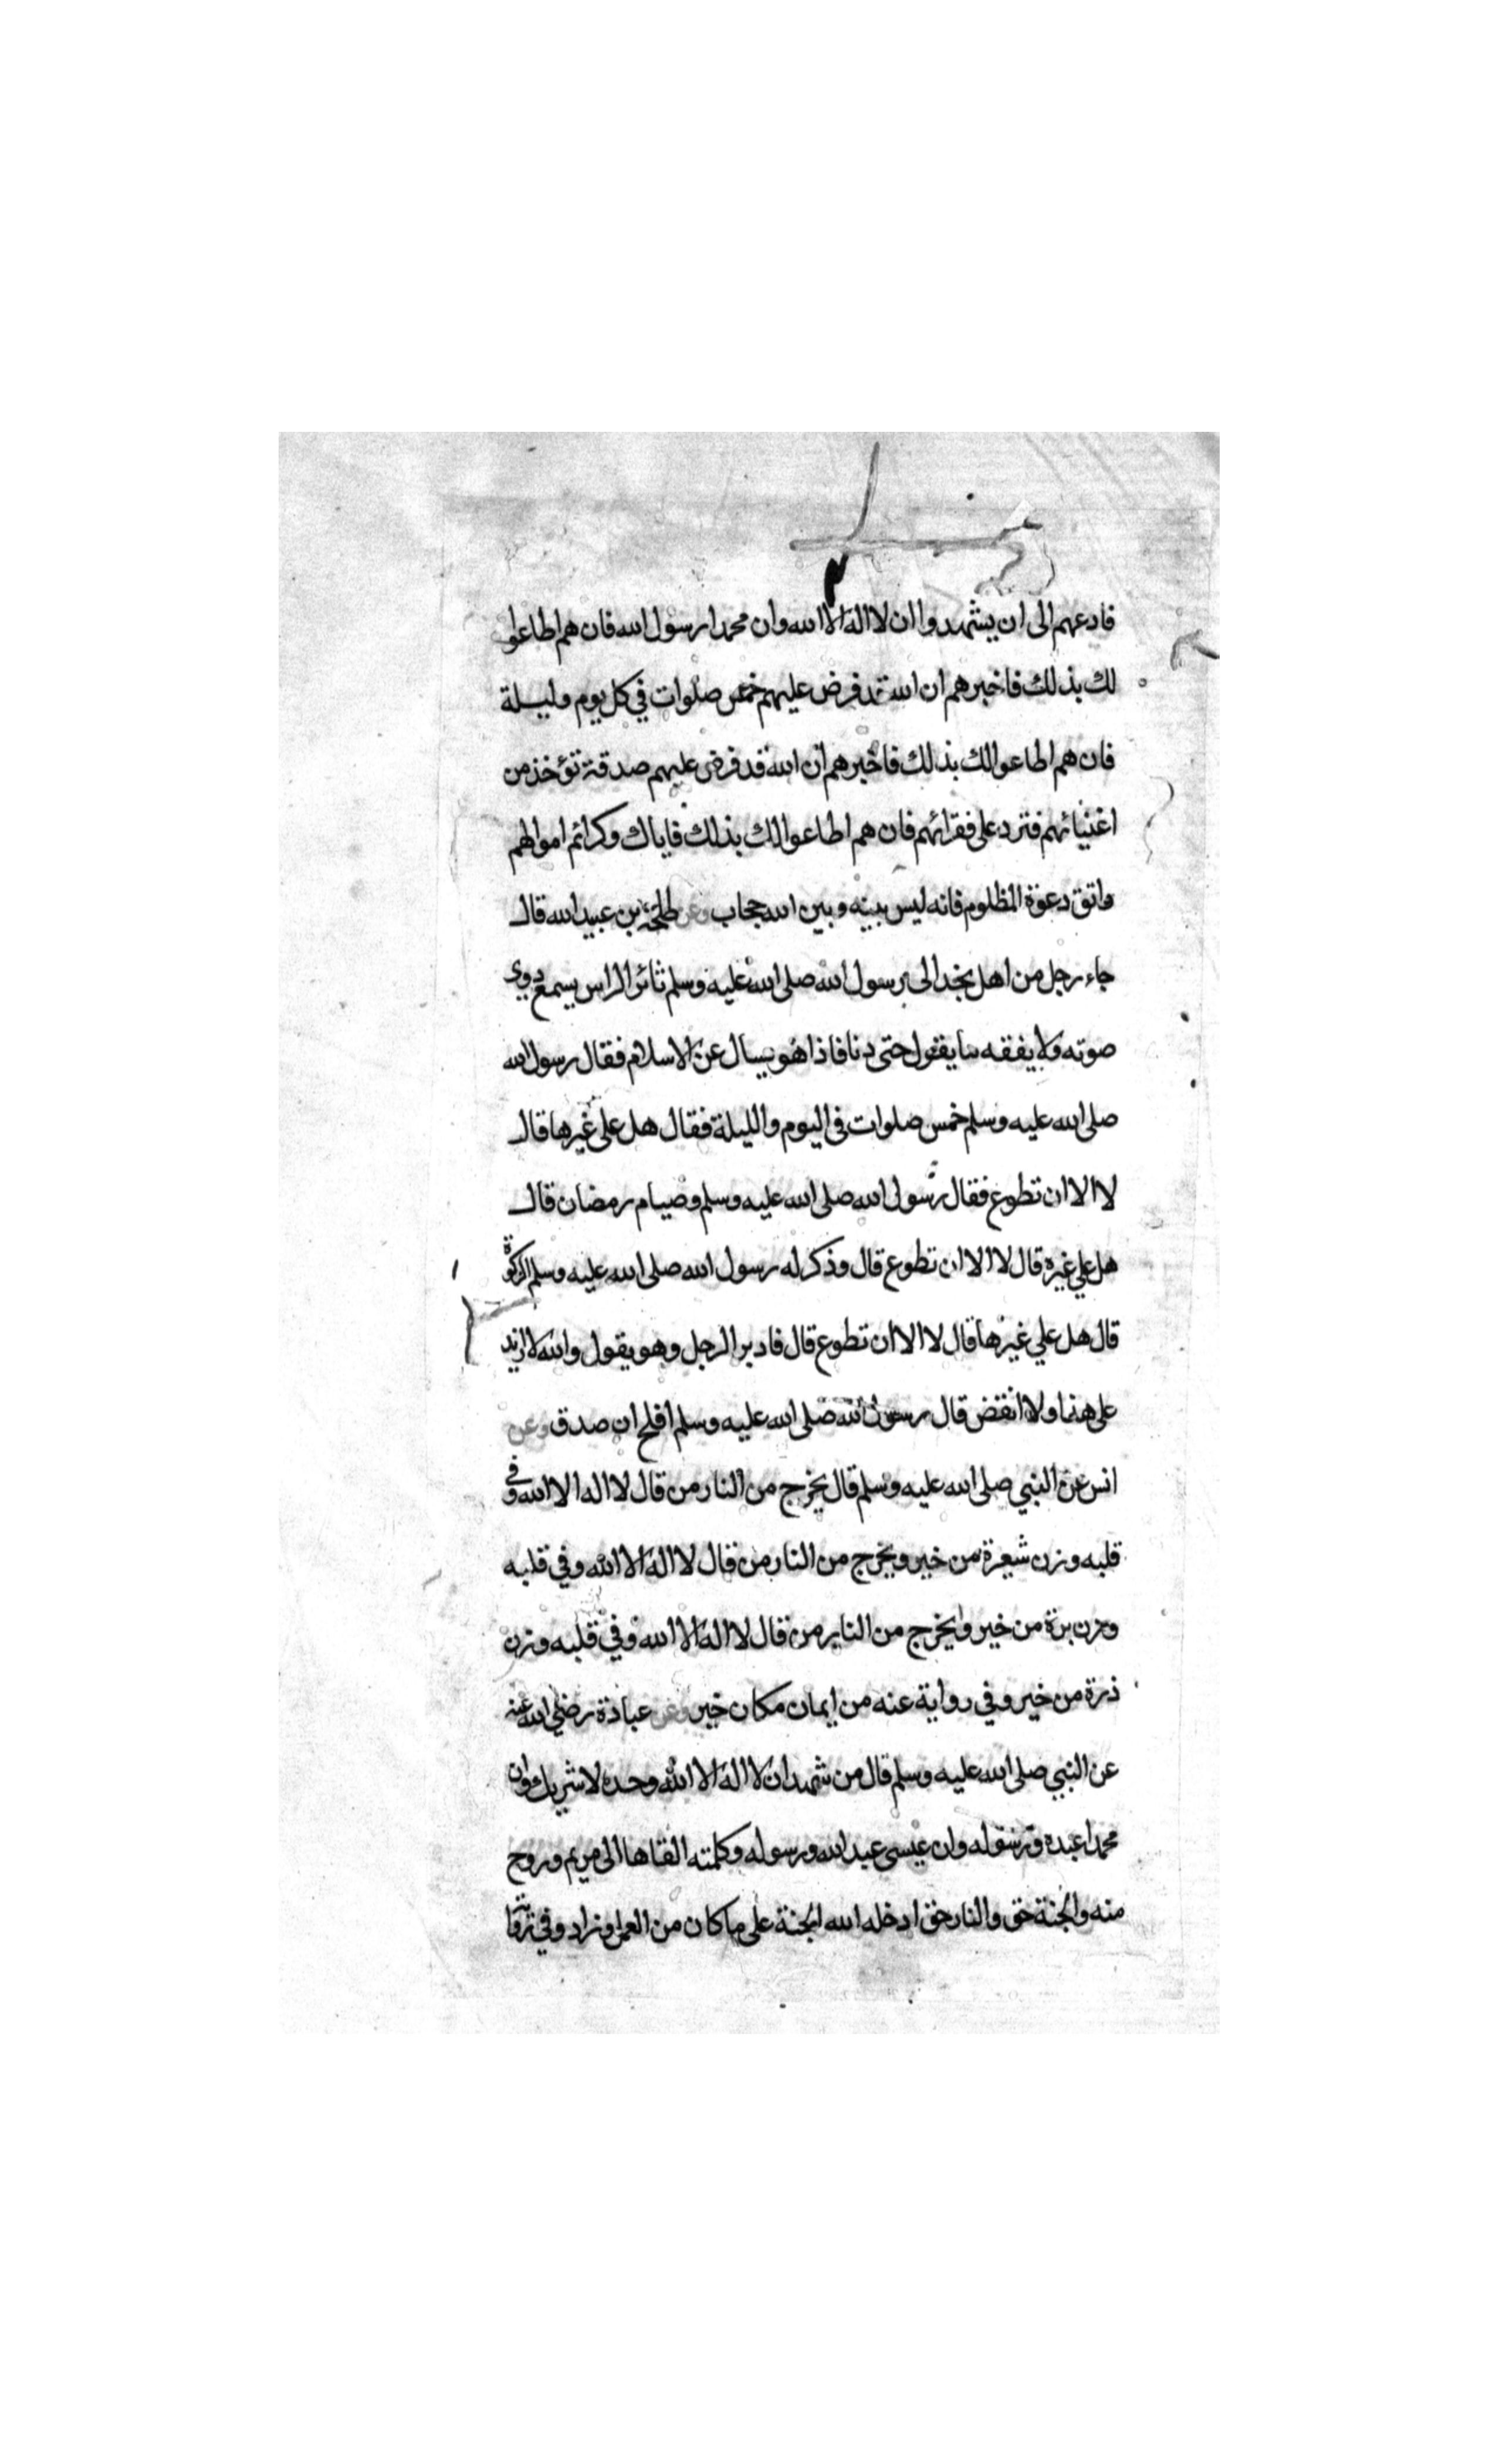 فادعهم الى ان يشهدوا ان لا اله الا الله وان محمدا رسول الله فان هم اطاعوا
لك بذلك فاخبرهم ان الله قد فرض عليهم خمس صلوات في كل يوم وليلة
فان هم اطاعوا لك بذلك فاخبرهم ان الله قد فرض عليهم صدقة تؤخذ من
اغنيائهم فترد على فقرائهم فان هم اطاعوا لك بذلك فاياك وكرائم اموالهم
واتق دعوة المظلوم فانه ليس بينه وبين الله حجاب وعن طلحة بن عبيد الله قال
جاء رجل من اهل نجد الى رسول الله صلى الله عليه وسلم ثائر الراس يسمع دوي
صوته ولا يفقه ما يقول حتى دنا فاذا هو يسال عن الاسلام فقال رسول الله
صلى الله عليه وسلم خمس صلوات في اليوم والليلة فقال هل على غيرها قال
لا الا ان تطوع فقال رسول الله صلى الله عليه وسلم وصيام رمضان قال
هل علي غيره قال لا الا ان تطوع قال وذكر له رسول الله صلى الله عليه وسلم الزكوة
قال هل علي غيرها قال لا الا ان تطوع قال فادبر الرجل وهو يقول والله لا ازيد
على هذا ولا انقض قال رسول الله صلى الله عليه وسلم افلح ان صدق وعن
انس عن النبي صلى الله عليه وسلم قال يخرج من النار من قال لا اله الا الله وفي
قلبه وزن شعيرة من خير ويخرج من النار من قال لا اله الا الله وفي قلبه
وزن برة من خير ويخرج من النار من قال لا اله الا الله وفي قلبه وزن
ذرة من خير وفي رواية عنه من ايمان مكان خير وعن عبادة رضي الله عنه
عن النبي صلى الله عليه وسلم قال من شهد ان لا اله الا الله وحده لا شريك وان
محمدا عبده ورسوله وان عيسى عبد الله ورسوله وكلمته القاها الى مريم وروح
منه والجنة حق والنار حق ادخله الله الجنة على ما كان من العمل وزاد وفي